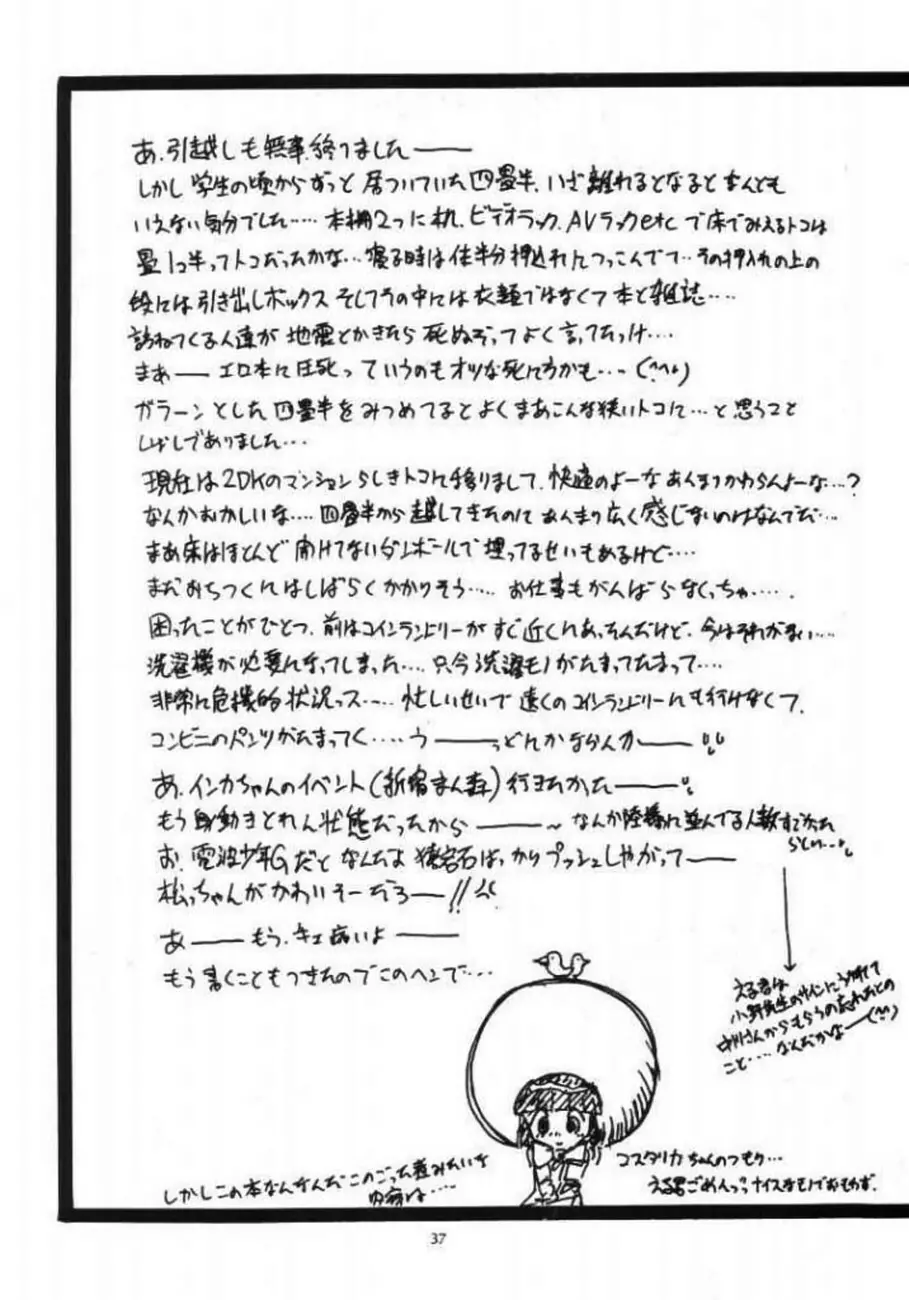 あ、引越しも無事、終りました――
しかし学生の頃からずっと居ついていた四畳半、いざ離れるとなるとなんとも
いえない気分でした‥‥本棚2つに机、ビデオラック、AVラックetcで床でみえるトコは
畳1コ半ってトコだったかな…寝る時は体半分押込れにつっこんでて‥その押入れの上の
段には引き出しボックスそしてその中には衣類ではなくて本と雑誌‥‥
訪ねてくる人達が地震とかきたら死ぬぞってよく言ってたっけ‥‥
まぁ――エロ本に圧死っていうのもオツな死に方かも‥‥(^^;)
ガラーンとした四畳半をみつめてるとよくまあこんな狭いトコに…と思うこと
しばしでありました…
現在は2DKのマンションらしきトコに移りまして、快適のよーなあんまりかわらんよーな…?
なんかおかしいな‥‥四畳半から越してきたのにあんまり広く感じないのはなんでだ‥‥
まあ床はほとんど開けてないダンボールで埋ってるせいもあるけど‥‥
まだおちつくにはしばらくかかりそう‥‥お仕事もがんばらなくっちゃ‥‥.
困ったことがひとつ、前はコインランドリーがすぐ近くにあったんだけど、今はそれがない‥‥
洗濯機が必要になってしまった‥‥只今洗濯モノがたまってたまって‥‥
非常に危機的状況っス‥‥忙しいせいで遠くのコインランドリーにも行けなくて、
コンビニのパンツがたまってく‥‥う――っどんかならんか――
あ、インカちゃんのイベント(新宿まんが森)行きたかった――
もう身動きとれん状態だったから――～なんか陸橋に並んでる人数すごかった
らしい…。
お、電波少年Gだとなんだよ猿岩石ばっかりプッシュしやがって――
松っちゃんがかわいそーだろ――!!
あ――もう、キェ病いよ――
もう書くこともつきたのでこのヘンで…
える君は
小野先生のサインにうかれてて
さんからもらうの忘れたとの
こと‥‥なんだかな――(^^)
コスタリカちゃんのつもり…
える君ごめんっっナイスなモノでおもわず.
しかしこの本なんなんだこのごった煮みたいな
内容は‥‥
37